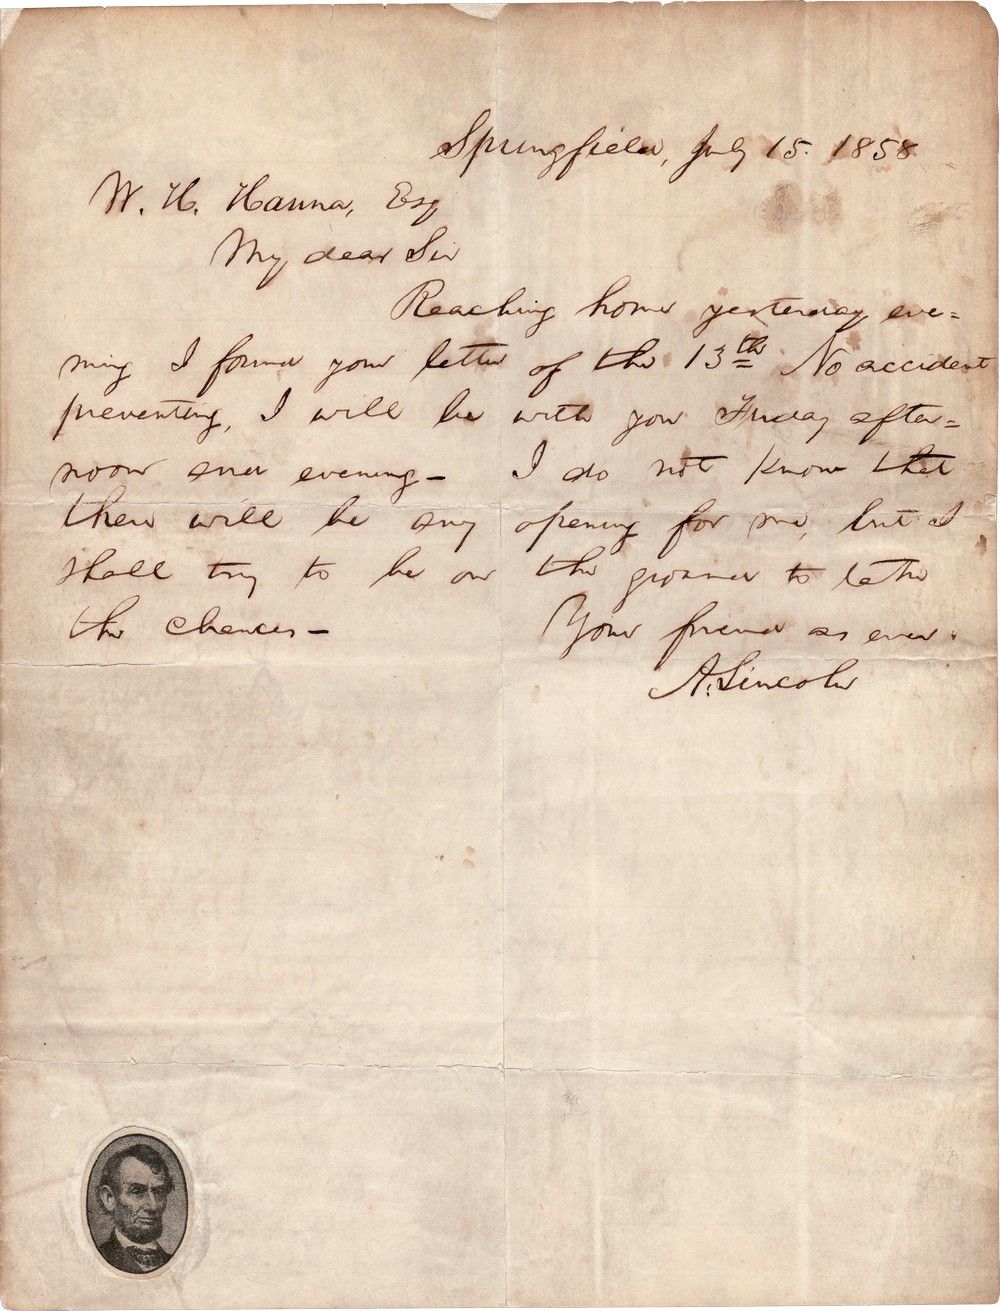 Springfield, July 15. 1858
W. H. Hanna, Esq
My dear Sir
Reaching home yesterday eve=
ning I found your letter of the 13th. No accident
preventing, I will be with you Friday after=
noon and evening — I do not know that
there will be any opening for me, but I
shall try to be on the ground to take
the chances —
Your friend as ever.
A. Lincoln